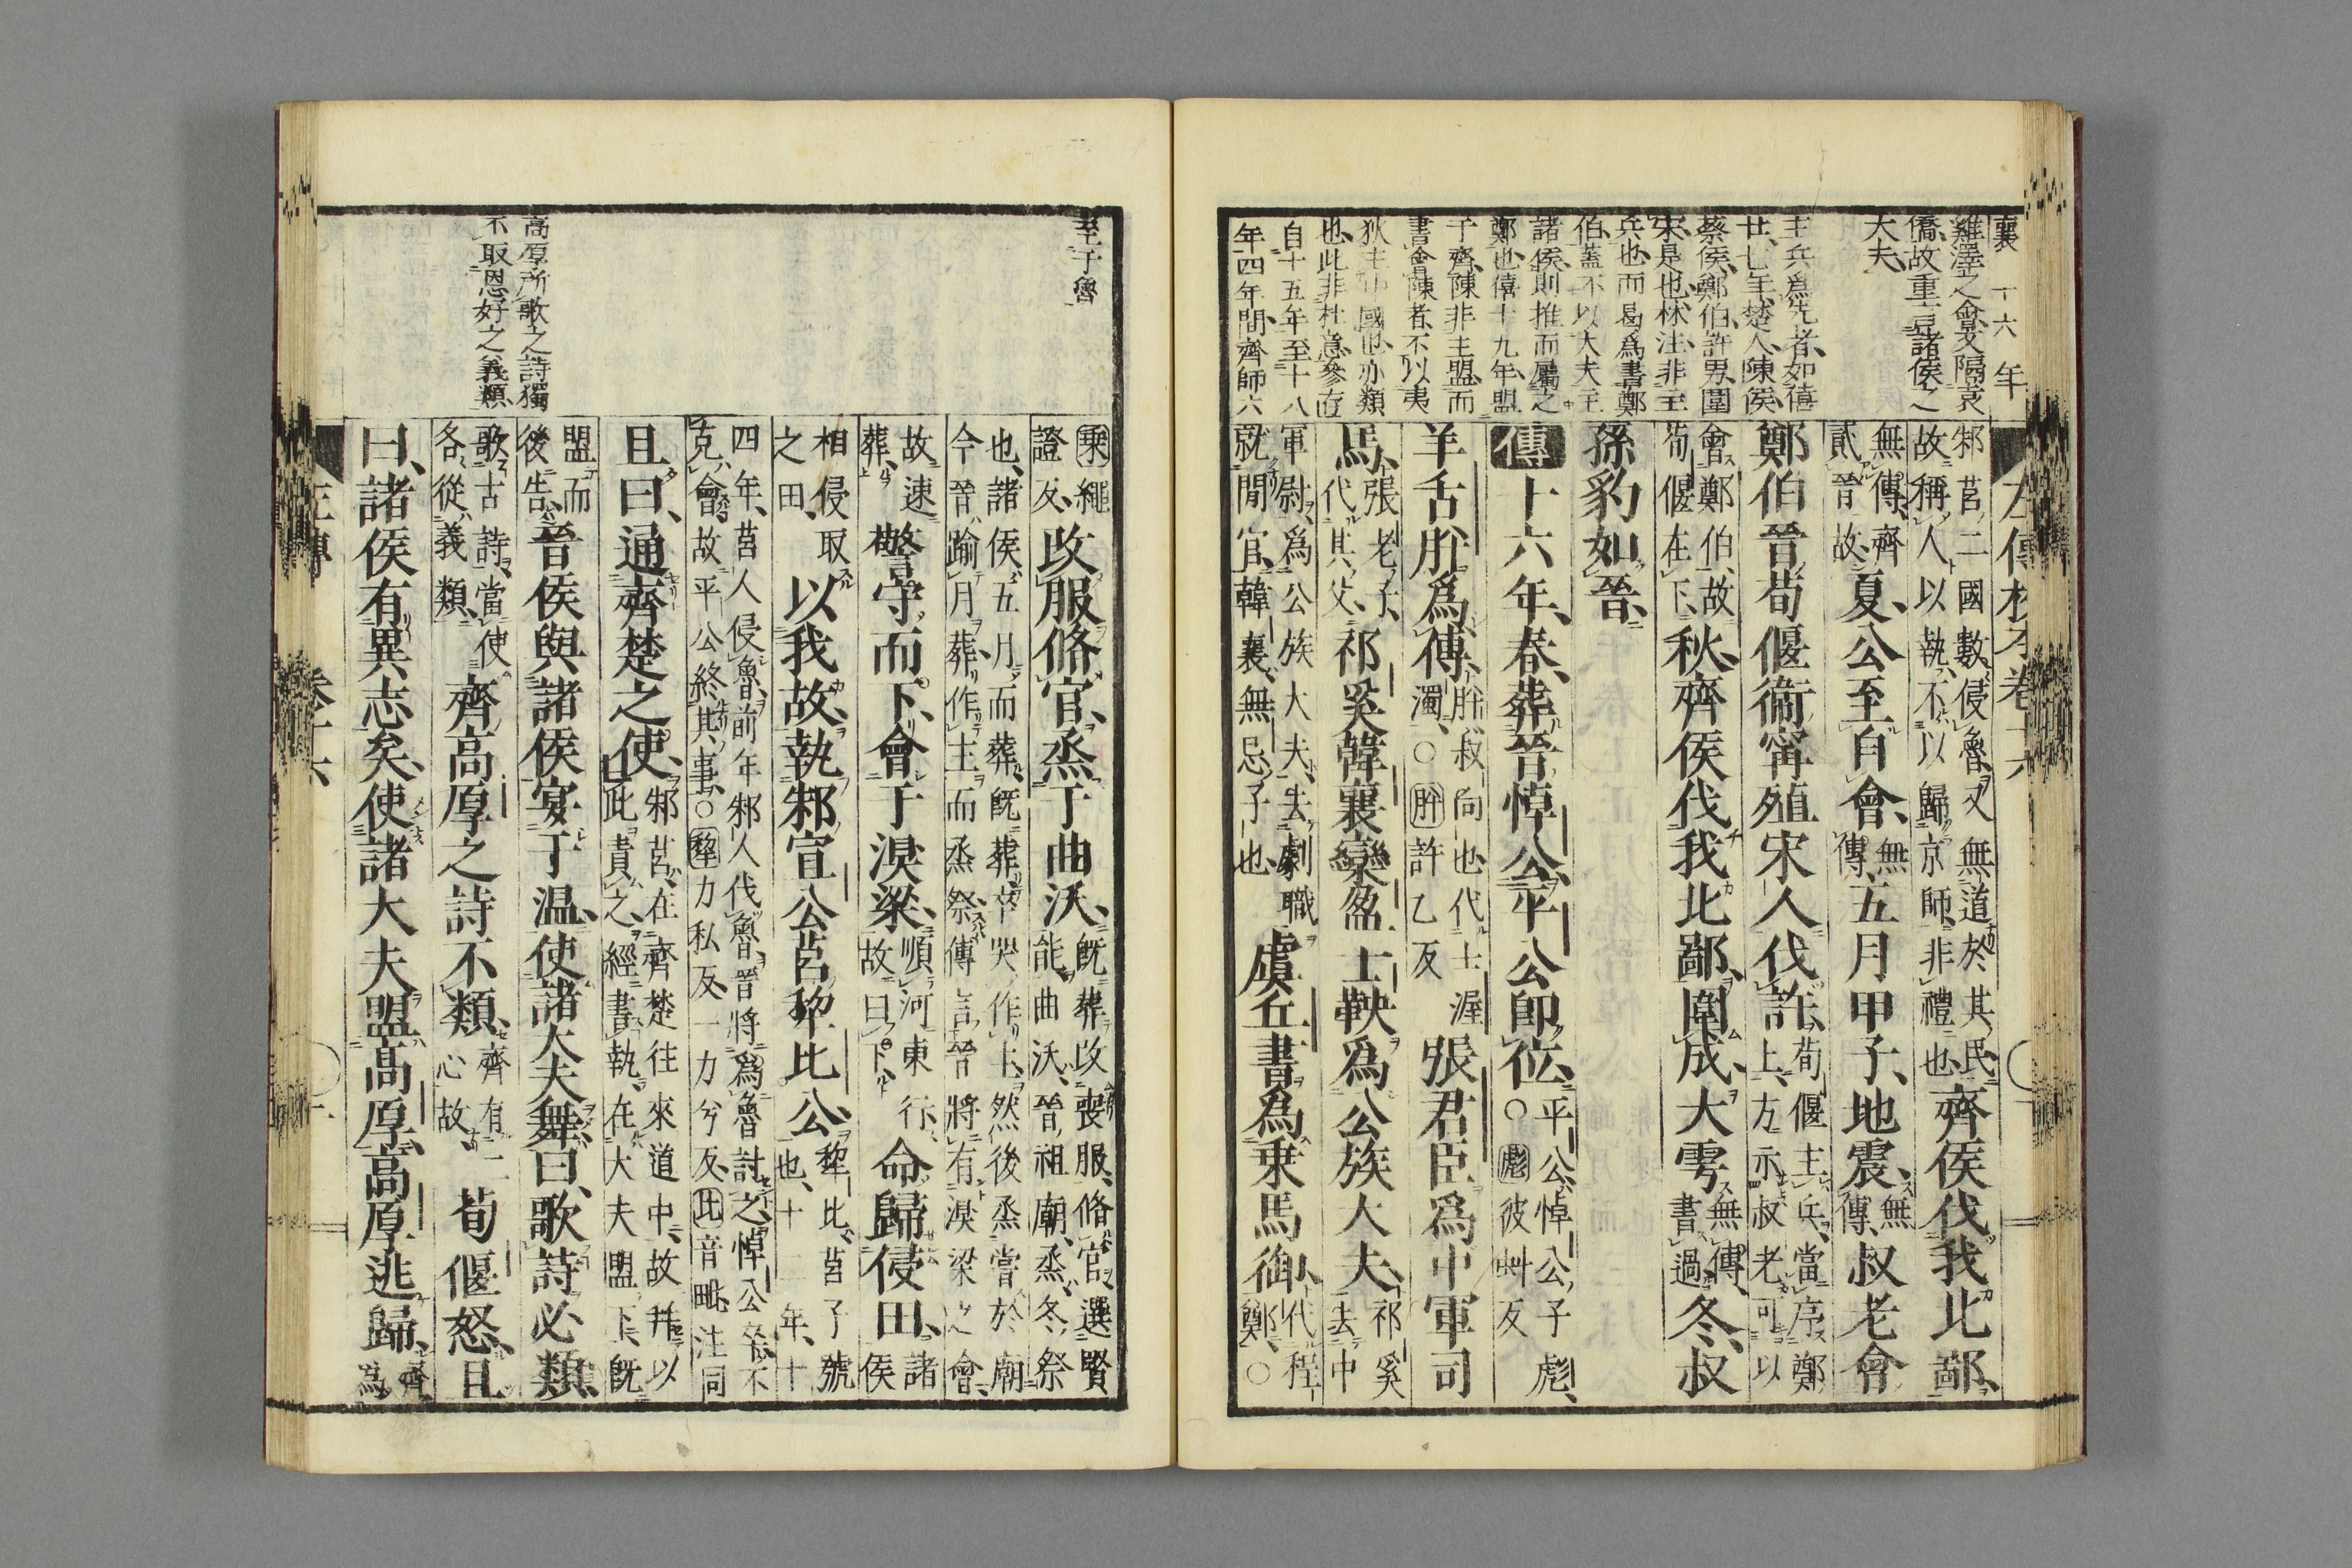 襄 十六年
雞澤之會又隔袁
僑故重言諸侯之
大夫
主兵爲先者如僖
廿七年楚人陳侯
蔡侯鄭伯許男圍
宋是也林注非主
兵也而曷爲書鄭
伯蓋不以大夫主
諸侯則推而屬之
鄭也僖十九年盟
于齊陳非主盟而
書會陳者不以夷
狄主中國也亦類
也此非杜意參存
自十五年至十八
年四年間齊師六
左傳校本卷十六
邾莒二國數侵魯又無道於其民
故稱人以執不以歸京師非禮也
齊侯伐我北鄙
無傳齊
貳晉故
夏公至自會
無
傳
五月甲子地震
無
傳
叔老會
鄭伯晉荀偃衞甯殖宋人伐許
荀偃主兵當序鄭
上方示叔老可以
會鄭伯故
荀偃在下
秋齊侯伐我北鄙圍成大雩
無傳
書過
冬叔
孫豹如晉
傳十六年春葬晉悼公平公卽位
平公悼公子彪
○彪彼虯反
羊舌肸爲傅
肸叔向也代士渥
濁○肸許乙反
張君臣爲中軍司
馬
張老子
代其父
祁奚韓襄欒盈士鞅爲公族大夫
祁奚
去中
軍尉爲公族大夫去劇職
就閒官韓襄無忌子也
虞丘書爲乘馬御
代程
鄭○
至于魯
高厚所歌之詩獨
不取恩好之義類
乘繩
證反
改服脩官烝于曲沃
旣葬改喪服脩官選賢
能曲沃晉祖廟烝冬祭
也諸侯五月而葬旣葬卒哭作主然後烝嘗於廟
今晉踰月葬作主而烝祭傳言晉將有湨梁之會
故速
葬
警守而下會于湨梁
順河東行
故曰下
命歸侵田
諸侯
相侵取
之田
以我故執邾宣公莒犂比公
犂比莒子號
也十二年十
四年莒人侵魯前年邾人伐魯晉將爲魯討之悼公卒不
克會故平公終其事○犂力私反一力兮反比音毗注同
且曰通齊楚之使
邾莒在齊楚往來道中故幷以
此責之經書執在大夫盟下旣
盟而
後告
晉侯與諸侯宴于温使諸大夫舞曰歌詩必類
歌古詩當使
各從義類
齊高厚之詩不類
齊有二
心故
荀偃怒且
曰諸侯有異志矣使諸大夫盟高厚高厚逃歸
齊
爲